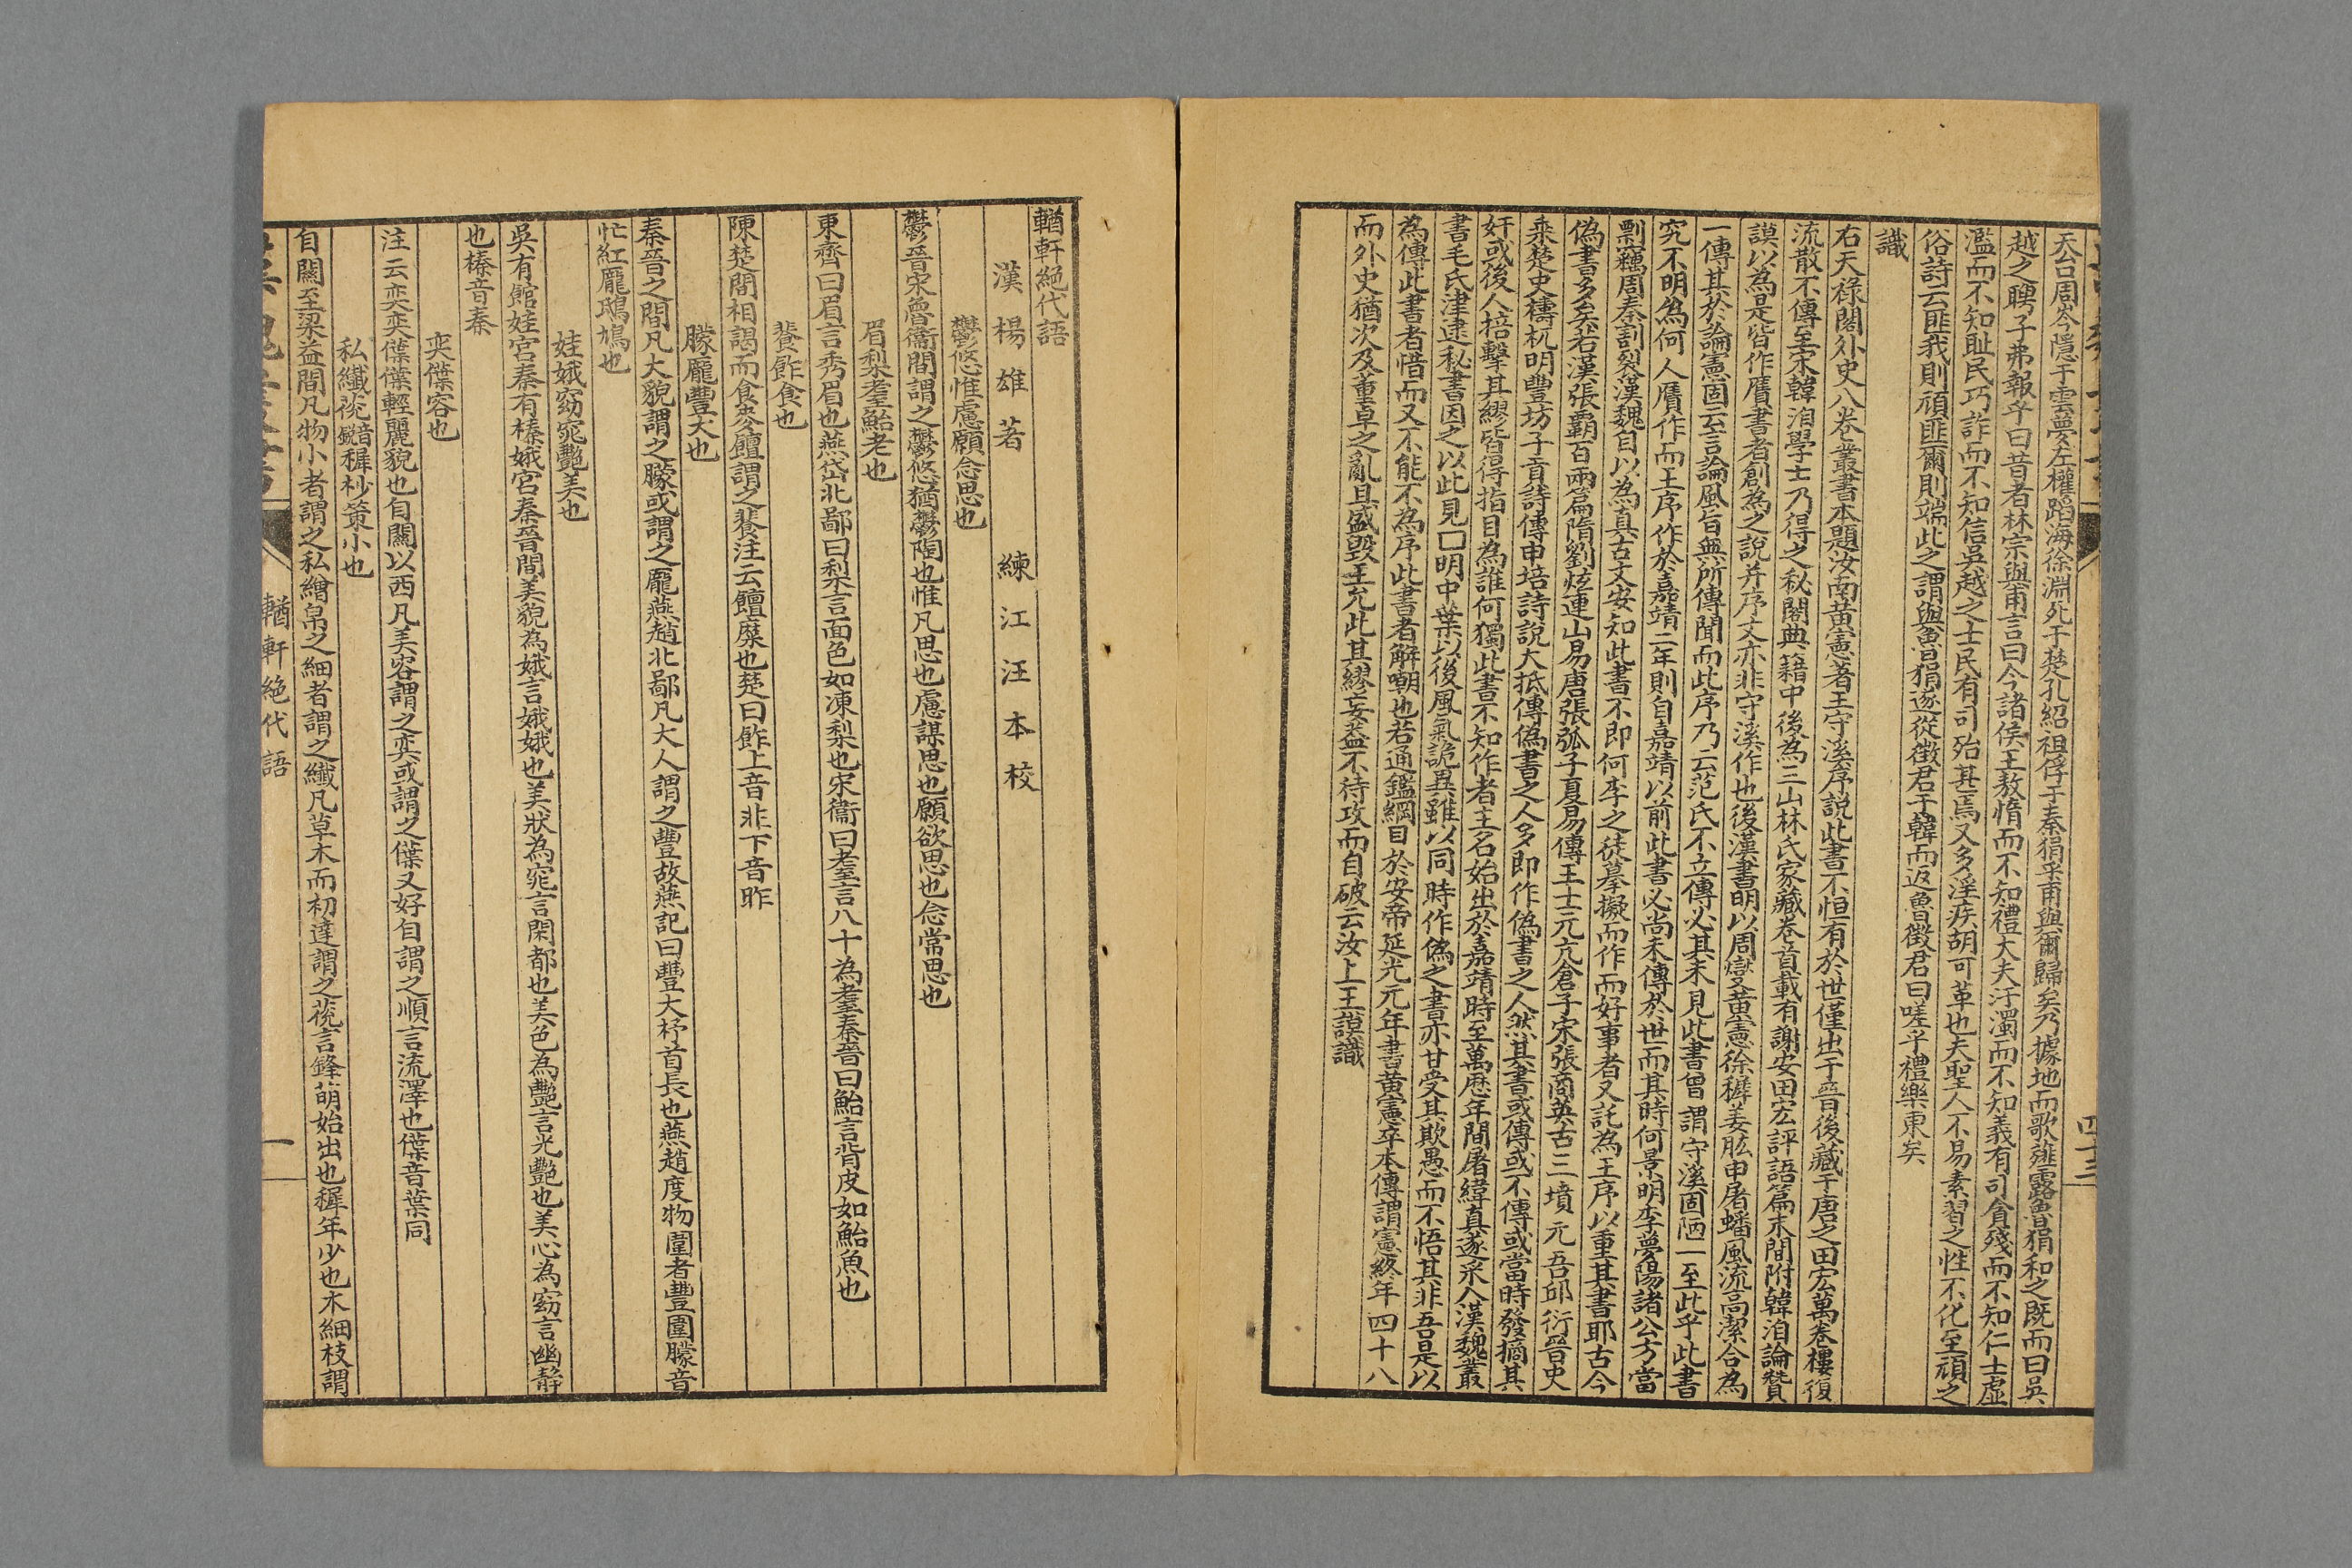 天台周岑隱于雲夢左權蹈海徐淵死于楚孔紹祖俘于秦狷采甫與爾歸矣乃據地而歌薤露魯狷和之既而曰吳
越之聘子弗報乎曰昔者林宗與甫言曰今諸侯王敖惰而不知禮大夫汙濁而不知義有司貪殘而不知仁士虛
濫而不知恥民巧詐而不知信吳越之士民有司殆甚焉又多淫疾胡可革也夫聖人不易素習之性不化至頑之
俗詩云匪我則頑匪爾則端此之謂與魯狷遂從徵君于韓而返魯徵君曰嗟乎禮樂東矣
識
右天祿閣外史八卷叢書本題汝南黃憲著王守溪序說此書不恒有於世僅出于晉後藏于唐之田宏萬卷樓復
流散不傳至宋韓洎學士乃得之秘閣典籍中後為三山林氏家藏卷首載有謝安田宏評語篇末間附韓洎論贊
謨以為是皆作贋書者創為之說并序文亦非守溪作也後漢書明以周燮黃憲徐穉姜肱申屠蟠風流高潔合為
一傳其於論憲固云言論風旨無所傳聞而此序乃云范氏不立傳必其未見此書曾謂守溪固陋一至此乎此書
究不明為何人贋作而王序作於嘉靖二年則自嘉靖以前此書必尚未傳於世而其時何景明李夢陽諸公方當
剽竊周秦割裂漢魏自以為真古文安知此書不即何李之徒摹擬而作而好事者又託為王序以重其書耶古今
偽書多矣若漢張霸百兩篇隋劉炫連山易唐張弧子夏易傳王士元亢倉子宋張商英古三墳元吾邱衍晉史
乘楚史檮杌明豐坊子貢詩傳申培詩說大抵傳偽書之人多即作偽書之人然其書或傳或不傳或當時發摘其
奸或後人掊擊其繆皆得指目為誰何獨此書不知作者主名始出於嘉靖時至萬歷年間屠緯真遂采入漢魏叢
書毛氏津逮秘書因之以此見口明中葉以後風氣詭異雖以同時作偽之書亦甘受其欺愚而不悟其非吾是以
為傳此書者惜而又不能不為序此書者解嘲也若通鑑綱目於安帝延光元年書黃憲卒本傳謂憲終年四十八
而外史猶次及董卓之亂且盛毀王允此其繆妄益不待攻而自破云汝上王謨識
四十三
輶軒絕代語
漢楊雄著　練江汪本校
鬱悠惟慮願念思也
鬱晉宋魯衛間謂之鬱悠猶鬱陶也惟凡思也慮謀思也願欲思也念常思也
眉梨耋鮐老也
東齊曰眉言秀眉也燕岱北鄙曰梨言面色如凍梨也宋衛曰耋言八十為耋秦晉曰鮐言背皮如鮐魚也
餥飵食也
陳楚間相謁而食麥饘謂之餥注云饘糜也楚曰飵上音非下音昨
朦厖豐大也
秦晉之間凡大貌謂之朦或謂之厖燕趙北鄙凡大人謂之豐故燕記曰豐大杼首長也燕趙度物圍者豐圍朦音
忙紅厖鴟鳩也
娃娥窈窕艷美也
吳有館娃宮秦有榛娥宮秦晉間美貌為娥言娥娥也美狀為窕言閑都也美色為艷言光艷也美心為窈言幽靜
也榛音秦
奕僷容也
注云奕奕僷僷輕麗貌也自關以西凡美容謂之奕或謂之僷又好自謂之順言流澤也僷音葉同
私纖䓲音銳穉杪策小也
自關至梁益間凡物小者謂之私繒帛之細者謂之纖凡草木而初達謂之䓲言鋒萌始出也穉年少也木細枝謂
輶軒絕代語
一